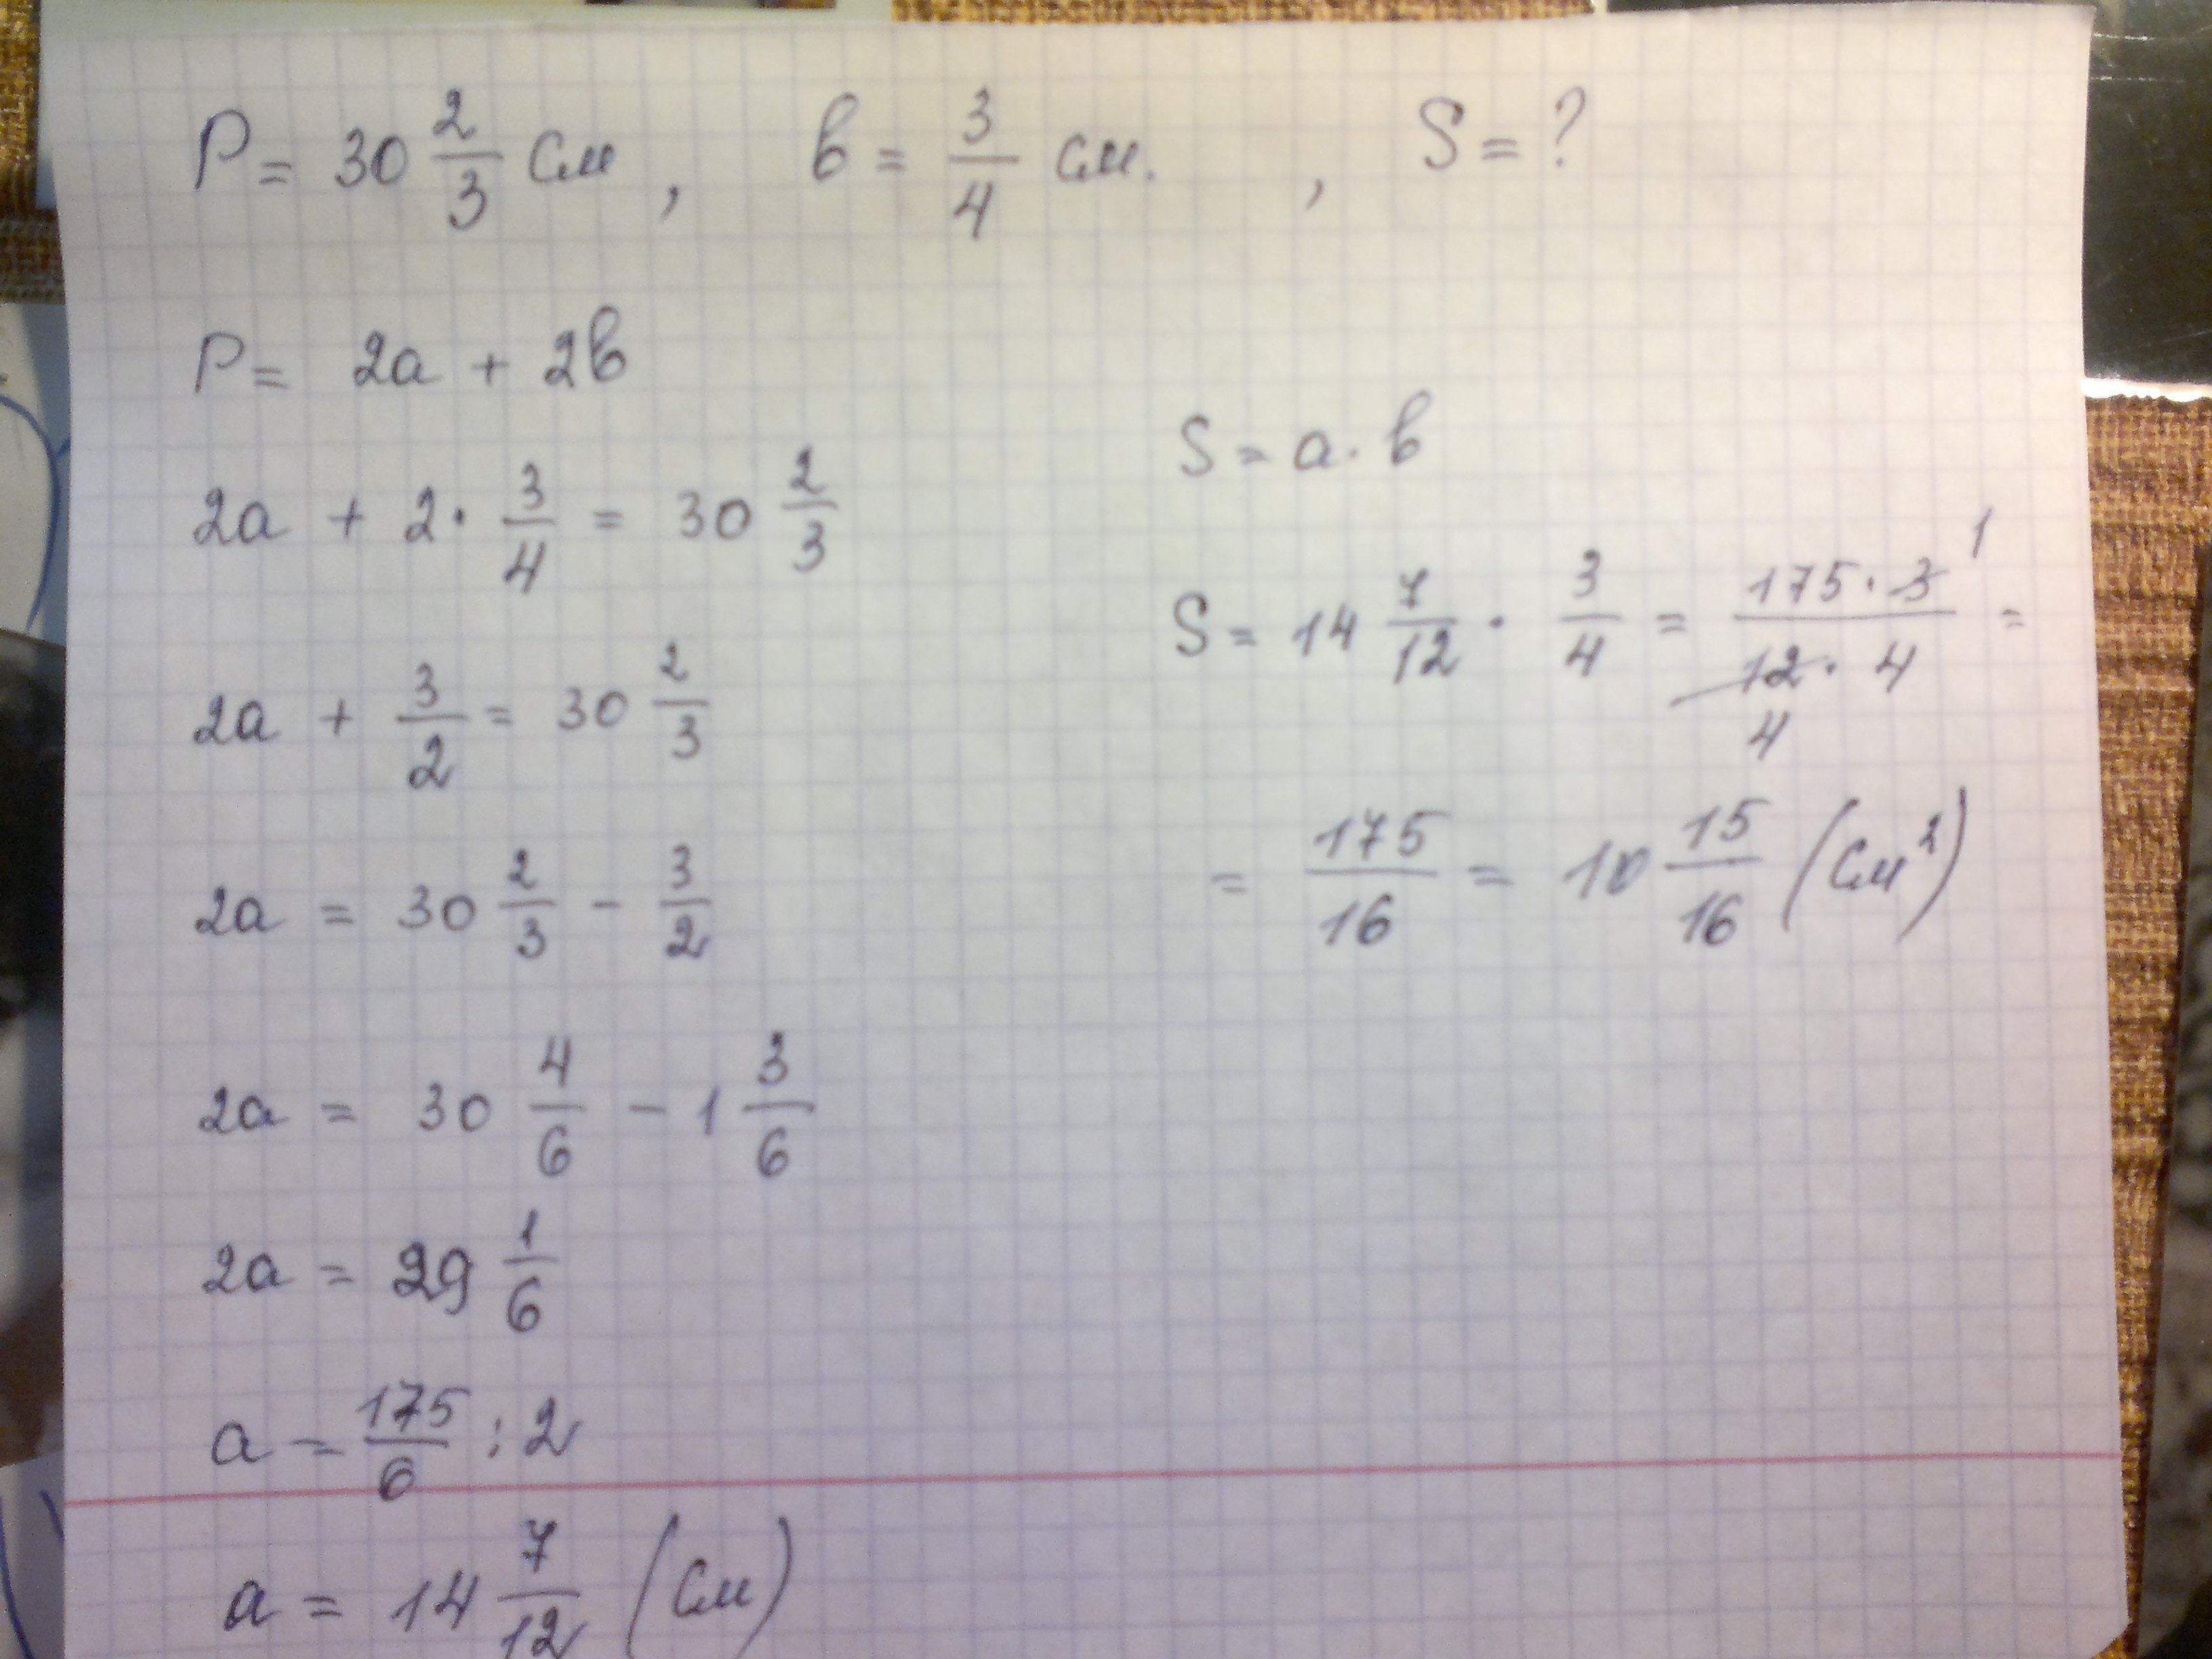 P = 30 2/3 см, в = 3/4 см. , S = ?
P = 2a + 2в
2a + 2 · 3/4 = 30 2/3
2a + 3/2 = 30 2/3
2a = 30 2/3 - 3/2
2a = 30 4/6 - 1 3/6
2a = 29 1/6
a = 175/6 : 2
a = 14 7/12 (см)
S = a · в
S = 14 7/12 · 3/4 = 175 · 3 1 / 12 · 4 4 =
= 175/16 = 10 15/16 (см²)